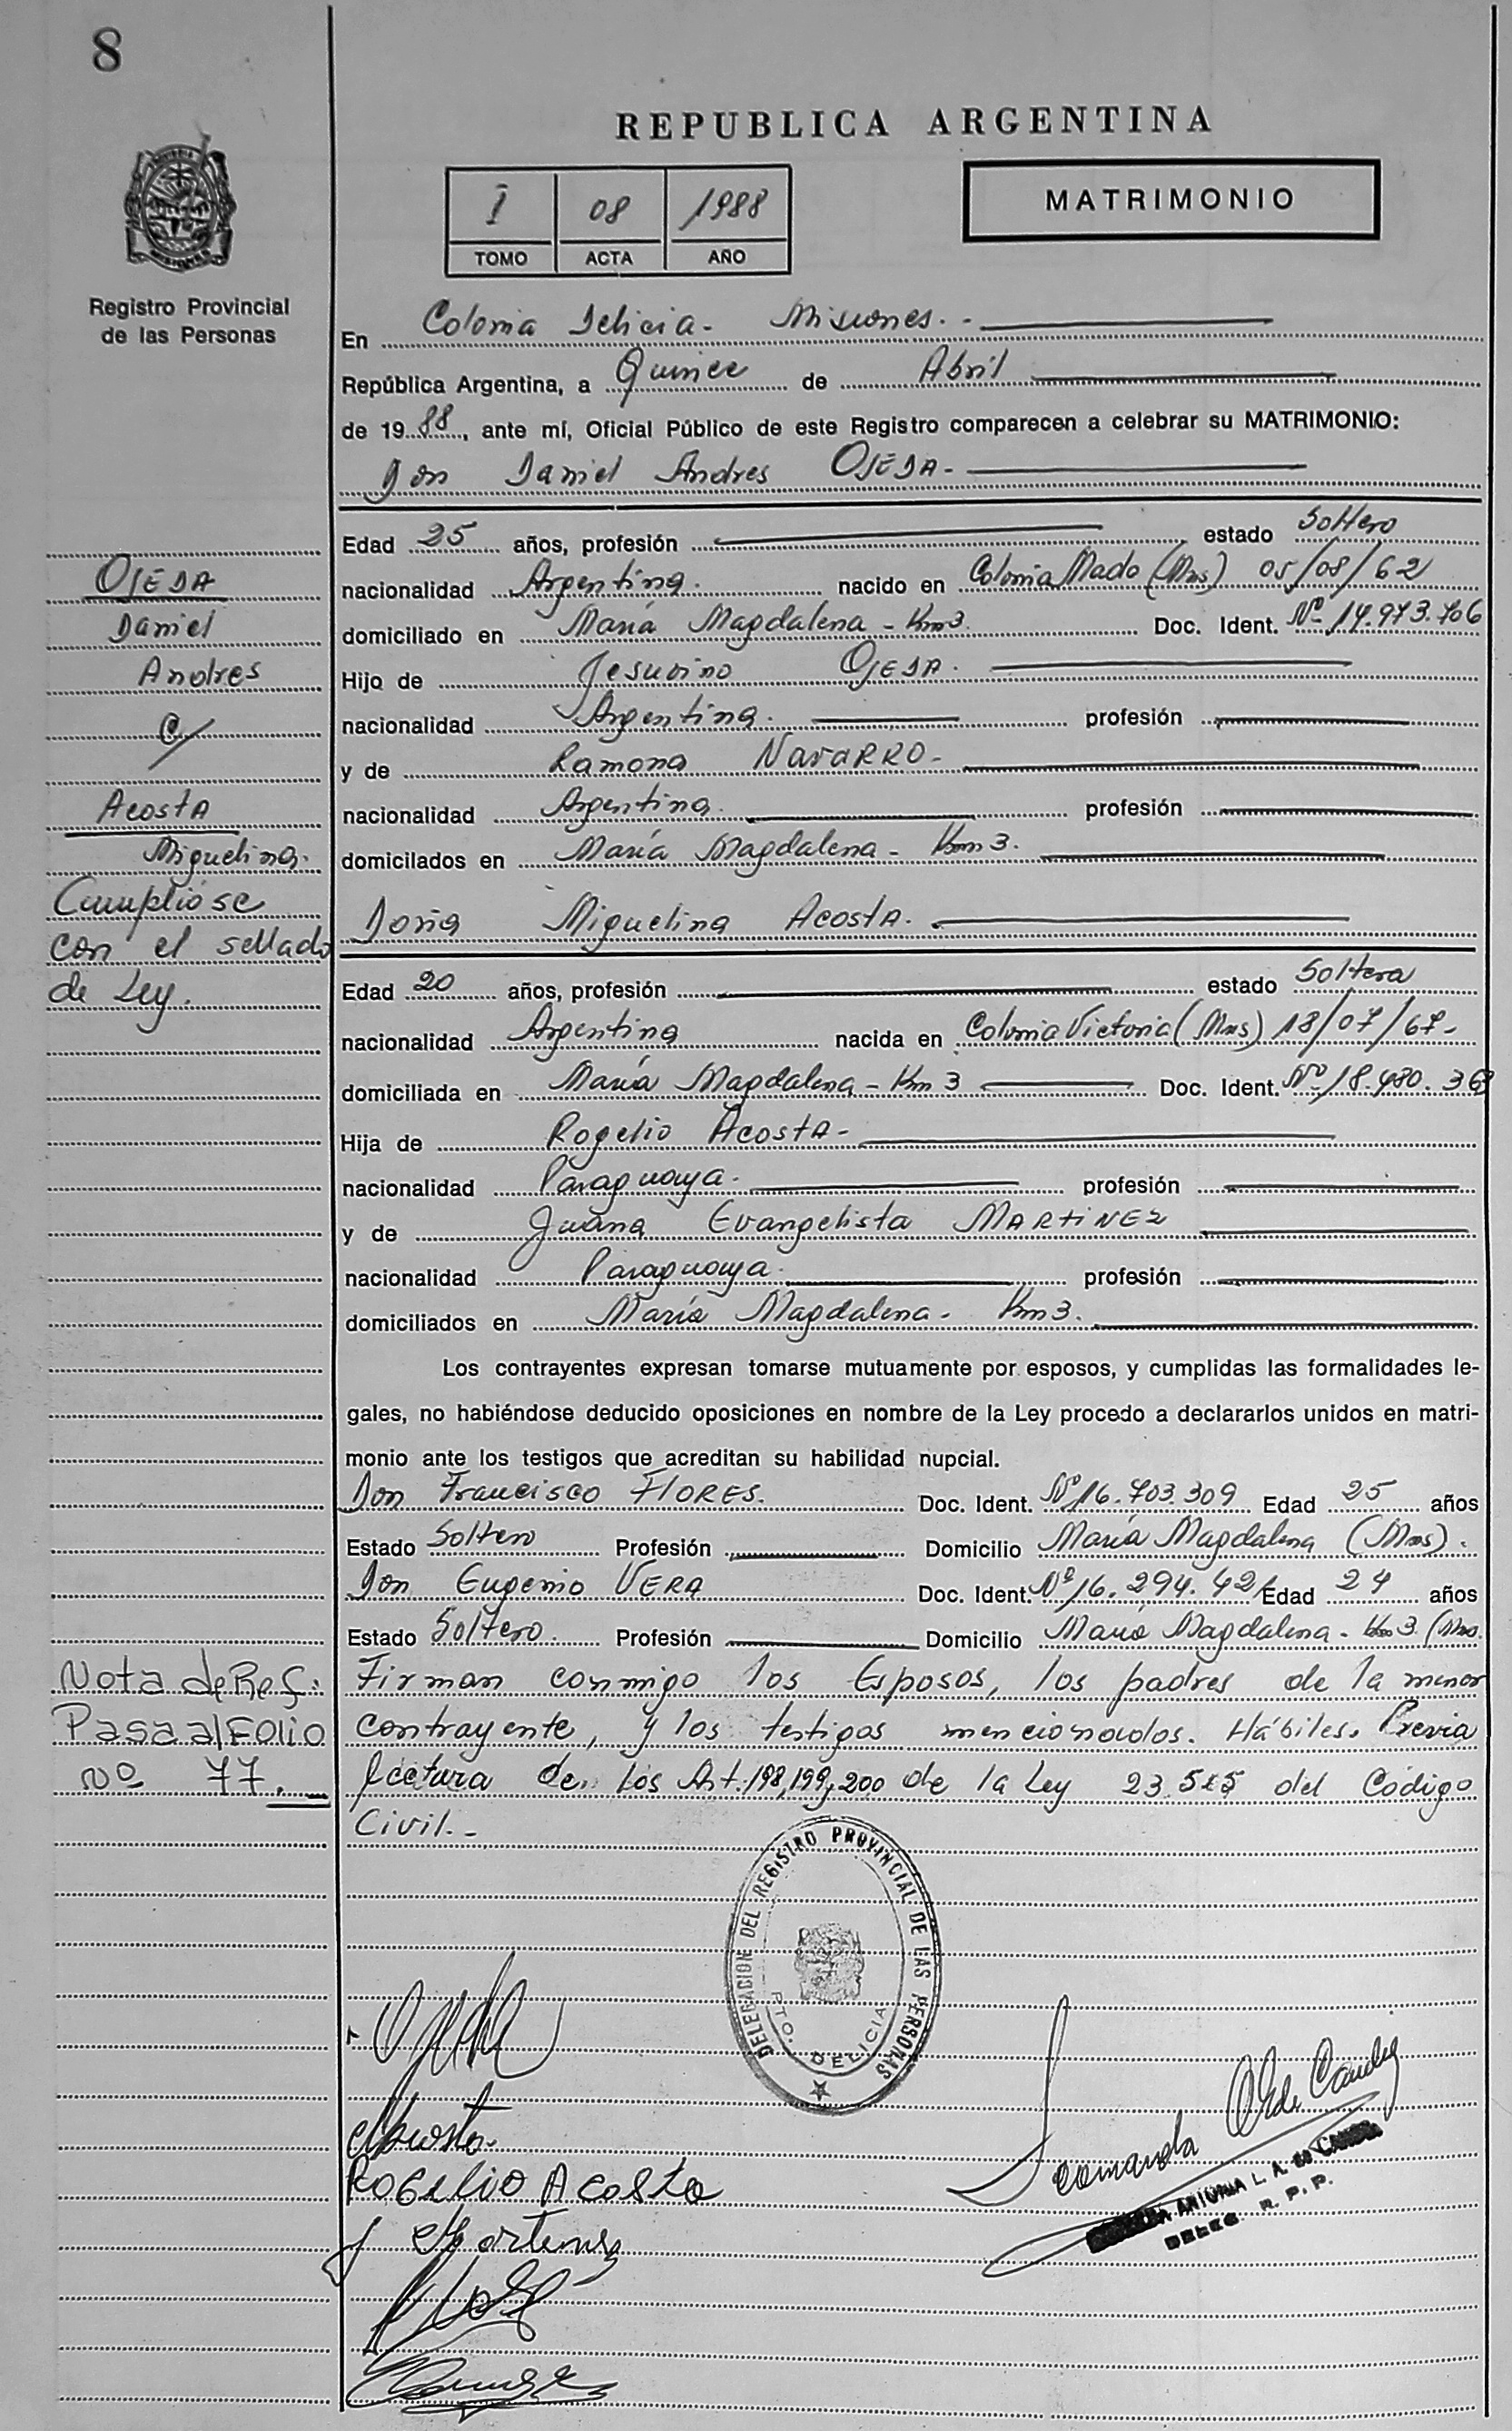 8
REPUBLICA ARGENTINA
I 08 1988
TOMO ACTA AÑO
MATRIMONIO
Registro Provincial
de las Personas
En Colonia Delicia - Misiones. -
República Argentina, a Quince de Abril
de 1988, ante mí, Oficial Público de este Registro comparecen a celebrar su MATRIMONIO:
Don Daniel Andres OJEDA -
Edad 25 años, profesión estado Soltero
nacionalidad Argentina. nacido en Colonia Mado (Mns) 05/08/62
domiciliado en María Magdalena - Km 3. Doc. Ident. Nº 14.973.706
Hijo de Jesuvino OJEDA.
nacionalidad Argentina. profesión
y de Ramona NavaRRO -
nacionalidad Argentina. profesión
domicilados en María Magdalena - Km 3.
Doña Miguelina AcostA.
Edad 20 años, profesión estado Soltera
nacionalidad Argentina nacida en Colonia Victoria (Mns) 18/07/67-
domiciliada en María Magdalena - Km 3 Doc. Ident. Nº 18.480.363
Hija de Rogelio AcostA -
nacionalidad Paraguaya. profesión
y de Juana Evangelista MARTINEZ
nacionalidad Paraguaya. profesión
domiciliados en María Magdalena - Km 3.
Los contrayentes expresan tomarse mutuamente por esposos, y cumplidas las formalidades le-
gales, no habiéndose deducido oposiciones en nombre de la Ley procedo a declararlos unidos en matri-
monio ante los testigos que acreditan su habilidad nupcial.
Don Francisco FLORES. Doc. Ident. Nº 16.703.309 Edad 25 años
Estado Soltero Profesión Domicilio María Magdalena (Mns).
Don Eugenio VERA Doc. Ident. Nº 16.294.421 Edad 24 años
Estado Soltero. Profesión Domicilio María Magdalena - Km 3 (Mns.
Firman conmigo los Esposos, los padres de la menor
contrayente, y los testigos mencionados. Hábiles. Previa
lectura de los Art. 198,199,200 de la Ley 23.515 del Código
Civil. -
OJEDA
Daniel
Andres
C/
AcostA
Miguelina.
Cumplióse
con el sellado
de Ley.
Nota de Ref:
Pasa al Folio
nº 77.
DELEGACION DEL REGISTRO PROVINCIAL DE LAS PERSONAS
PTO. DELICIA
Acosta
ROGELIO ACosta
J Martinez
ANTONIA L. A. de CANDIA
DELEG. R. P. P.